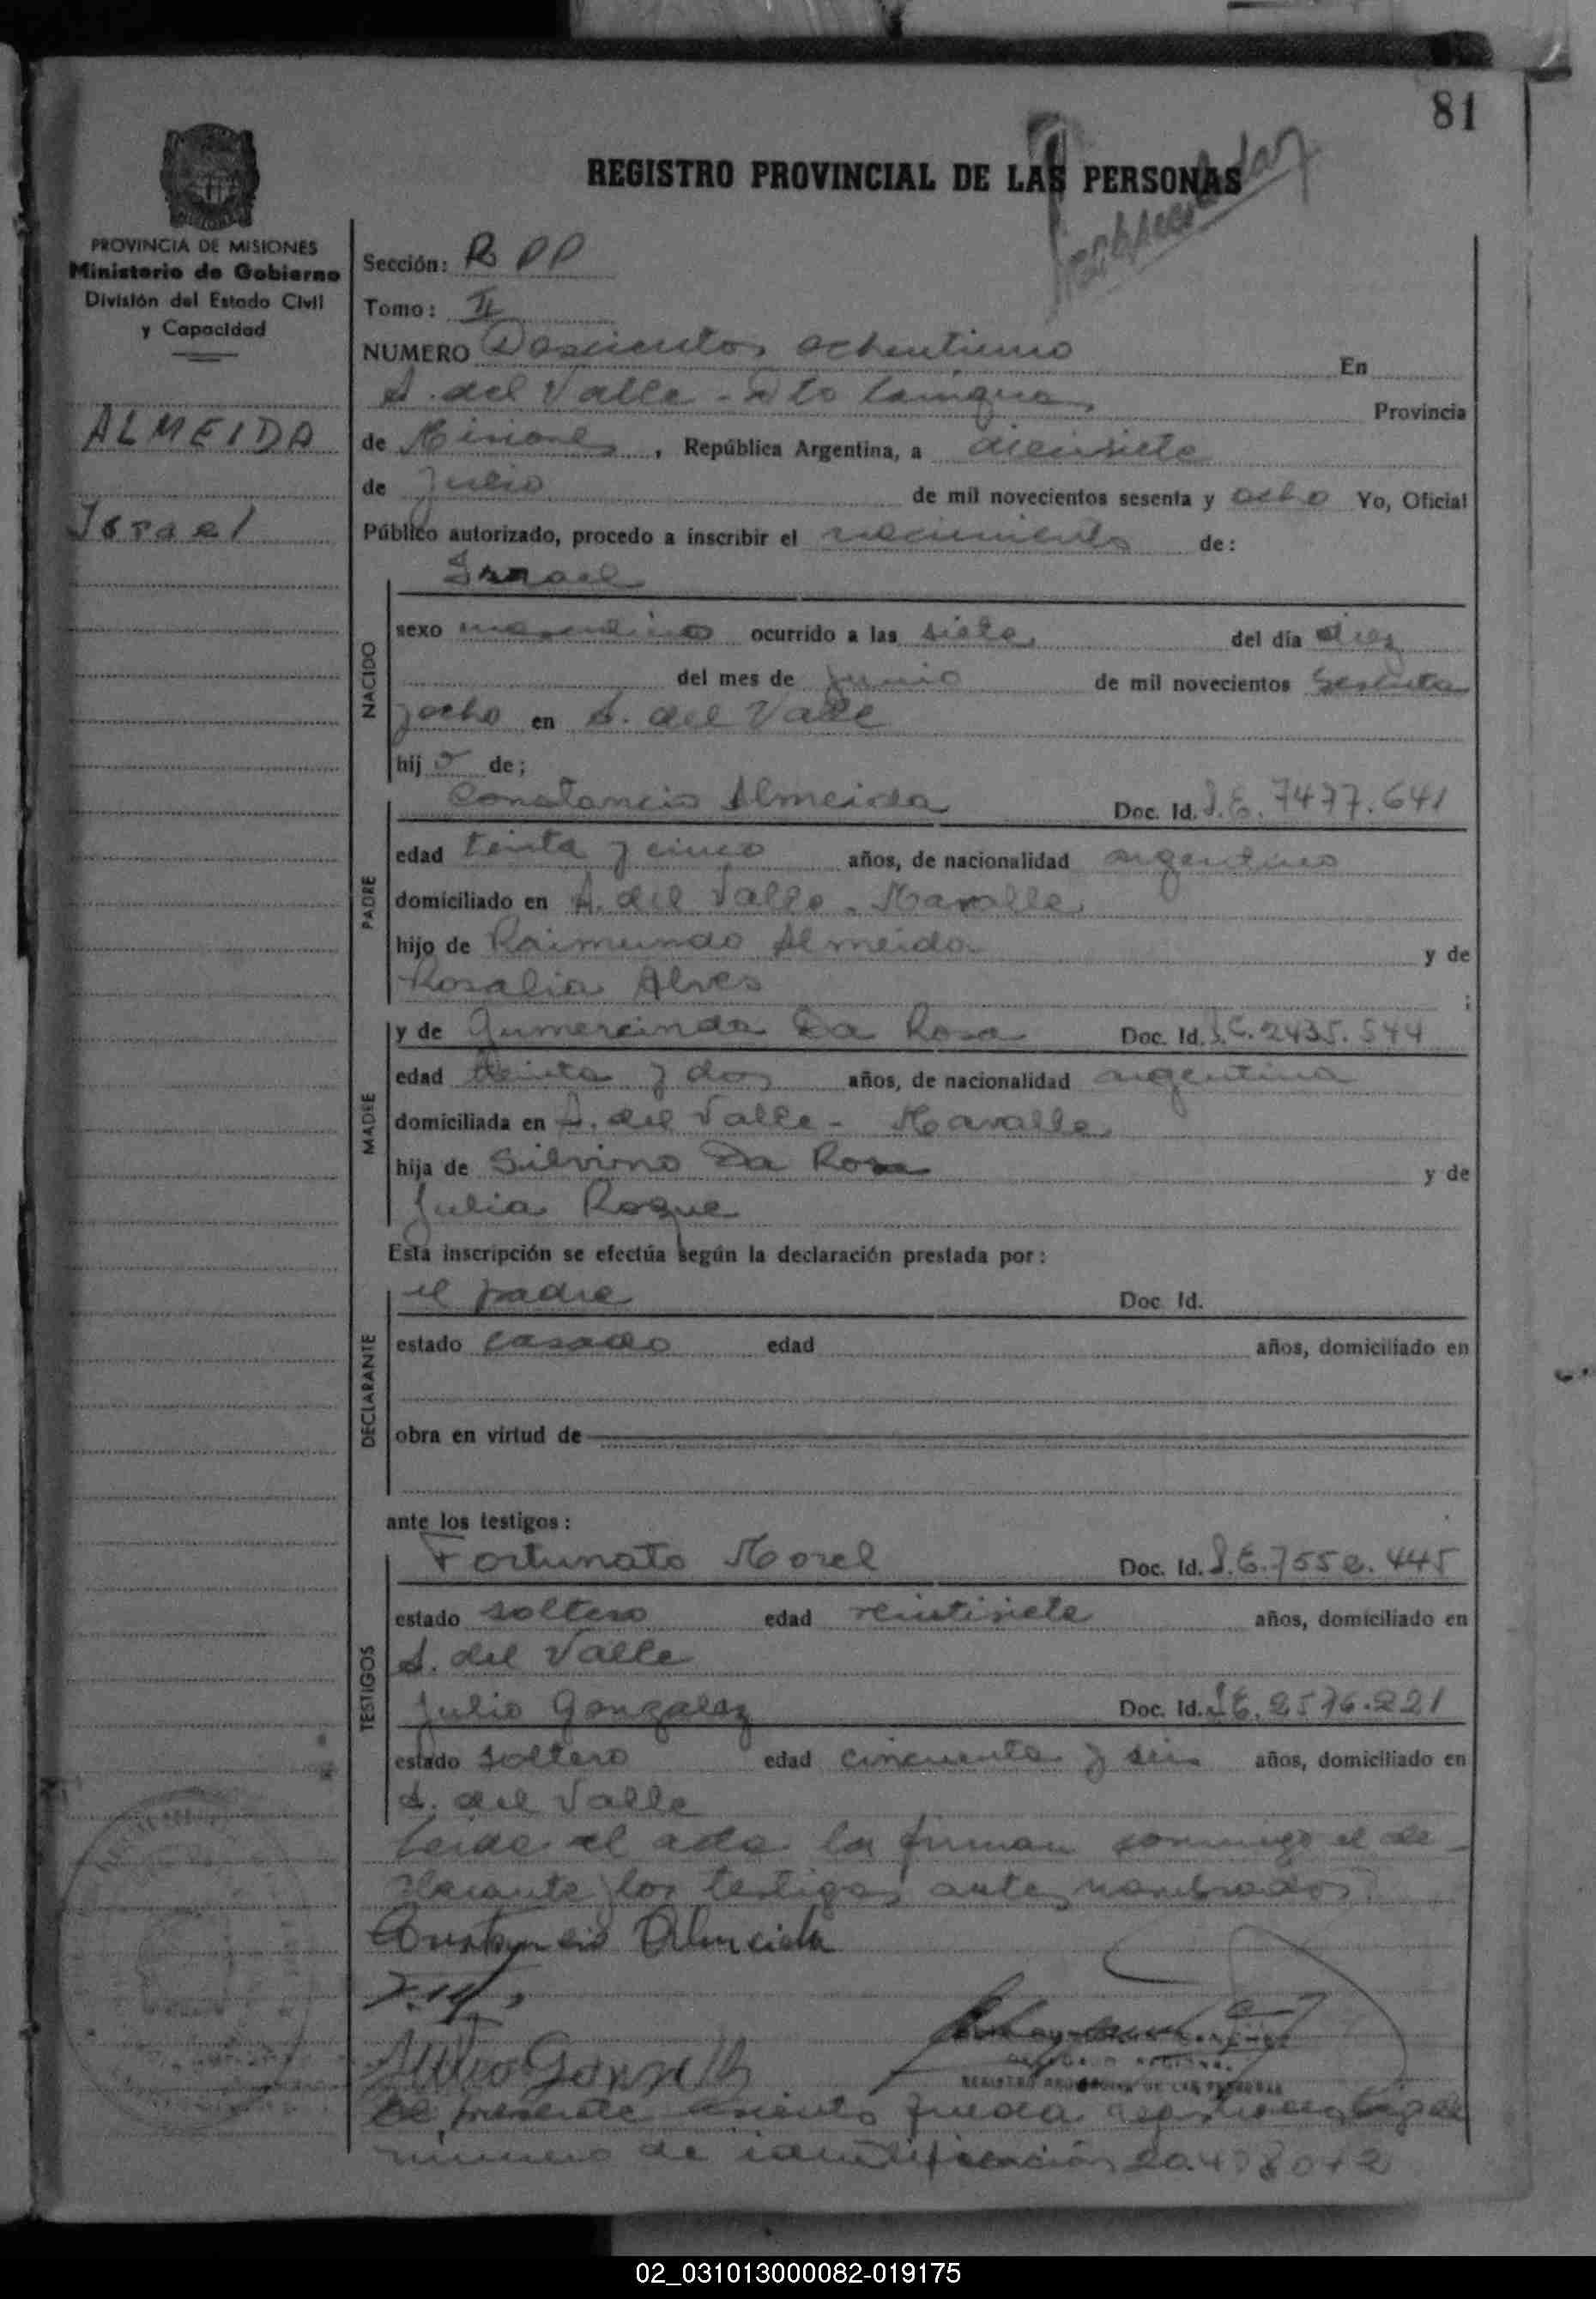 81
REGISTRO PROVINCIAL DE LAS PERSONAS
PROVINCIA DE MISIONES
Ministerio de Gobierno
División del Estado Civil
y Capacidad
ALMEIDA
Israel
Sección: R PP
Tomo: II
NUMERO Doscientos ochentiuno En
A. del Valle - Dto Cainguas Provincia
de Misiones, República Argentina, a diecisiete
de Julio de mil novecientos sesenta y ocho Yo, Oficial
Público autorizado, procedo a inscribir el nacimiento de:
Israel
NACIDO
sexo masculino ocurrido a las siete del día diez
del mes de junio de mil novecientos sesenta
y ocho en A. del Valle
hijo de;
Constancio Almeida Doc. Id. L.E. 7477.641
PADRE
edad treinta y cinco años, de nacionalidad argentino
domiciliado en A. del Valle - Mavalle
hijo de Raimundo Almeida y de
Rosalia Alves ;
MADRE
y de Gumercinda Da Rosa Doc. Id. L.C. 2435.544
edad treinta y dos años, de nacionalidad argentina
domiciliada en A. del Valle - Mavalle
hija de Silvino Da Rosa y de
Julia Roque
Esta inscripción se efectúa según la declaración prestada por:
el padre Doc. Id.
DECLARANTE
estado casado edad años, domiciliado en
obra en virtud de
ante los testigos:
Fortunato Morel Doc. Id. L.E. 7552.445
TESTIGOS
estado soltero edad veintisiete años, domiciliado en
A. del Valle
Julio Gonzalez Doc. Id. L.E. 2576.221
estado soltero edad cincuenta y seis años, domiciliado en
A. del Valle
Leida el acta la firman conmigo el de-
clarante y los testigos antes nombrados
Constancio Almeida
Julio Gonzalez
REGISTRO PROVINCIAL DE LAS PERSONAS
El presente asiento queda
numero de identificación
02_031013000082-019175